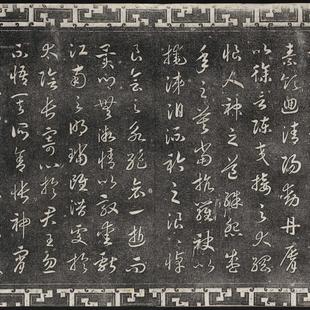 素領迴清陽動丹脣
以徐言陳交接之大綱
恨人神之道殊怨盛
年之莫當抗羅袂以
掩涕泪流衿之浪浪悼
良會之永絕哀一逝而
異鄉無微情以效愛獻
江南之明璫雖潛處於
太陰長寄心於君王忽
不悟其所舍悵神霄